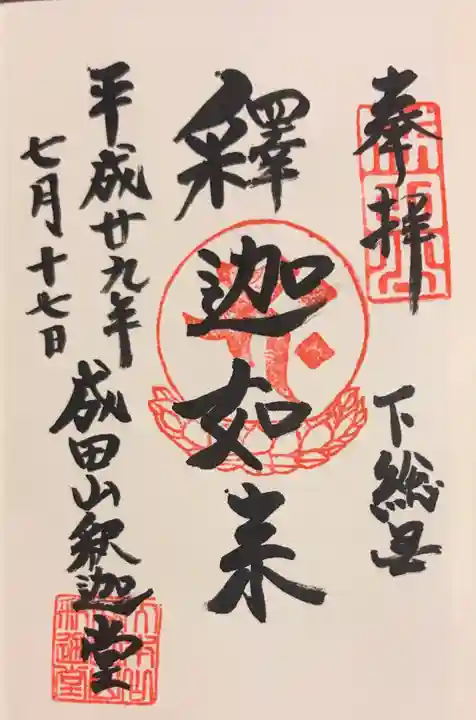 奉拝
下総國
釋迦如来
平成廿九年
七月十七日
成田山釈迦堂